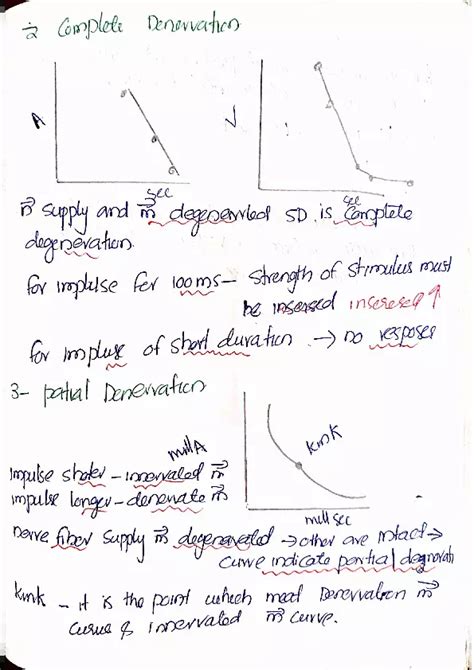 2 Complete Denervation
A
V
sec
sec
n supply and m degenerated SD is Complete
degeneration.
for impulse fer 100ms - strength of stimulus must
be insersed inseresed ↑
for impluse of short duration → no resposes
3- patial Denervation
mill A
kink
impulse shoter - innervated m
impulse longer - denervate m
mill sec
nerve fiber supply m degenerated → other are intact →
curve indicate pontial degnerati
kink - it is the point which meat Denervation m
curve & innervated m curve.